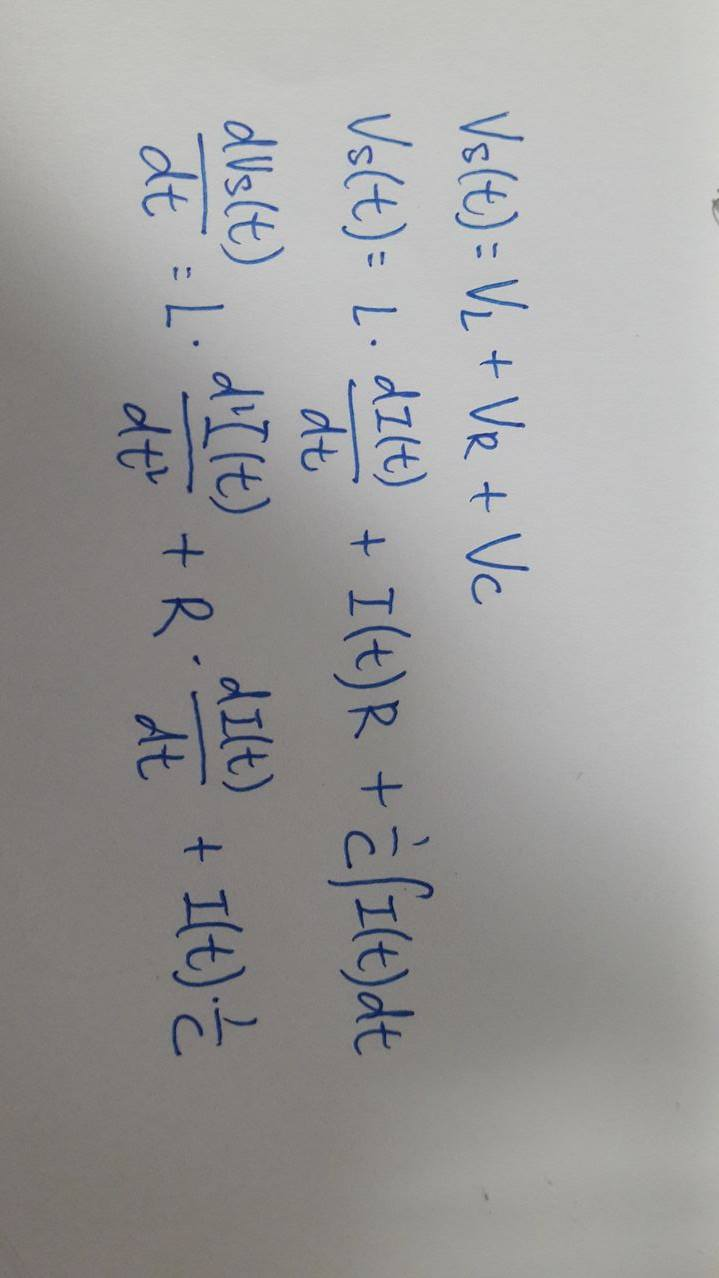 Vs(t) = VL + VR + VC
Vs(t) = L · dI(t)/dt + I(t)R + 1/C ∫I(t)dt
dVs(t)/dt = L · d²I(t)/dt² + R · dI(t)/dt + I(t) · 1/C